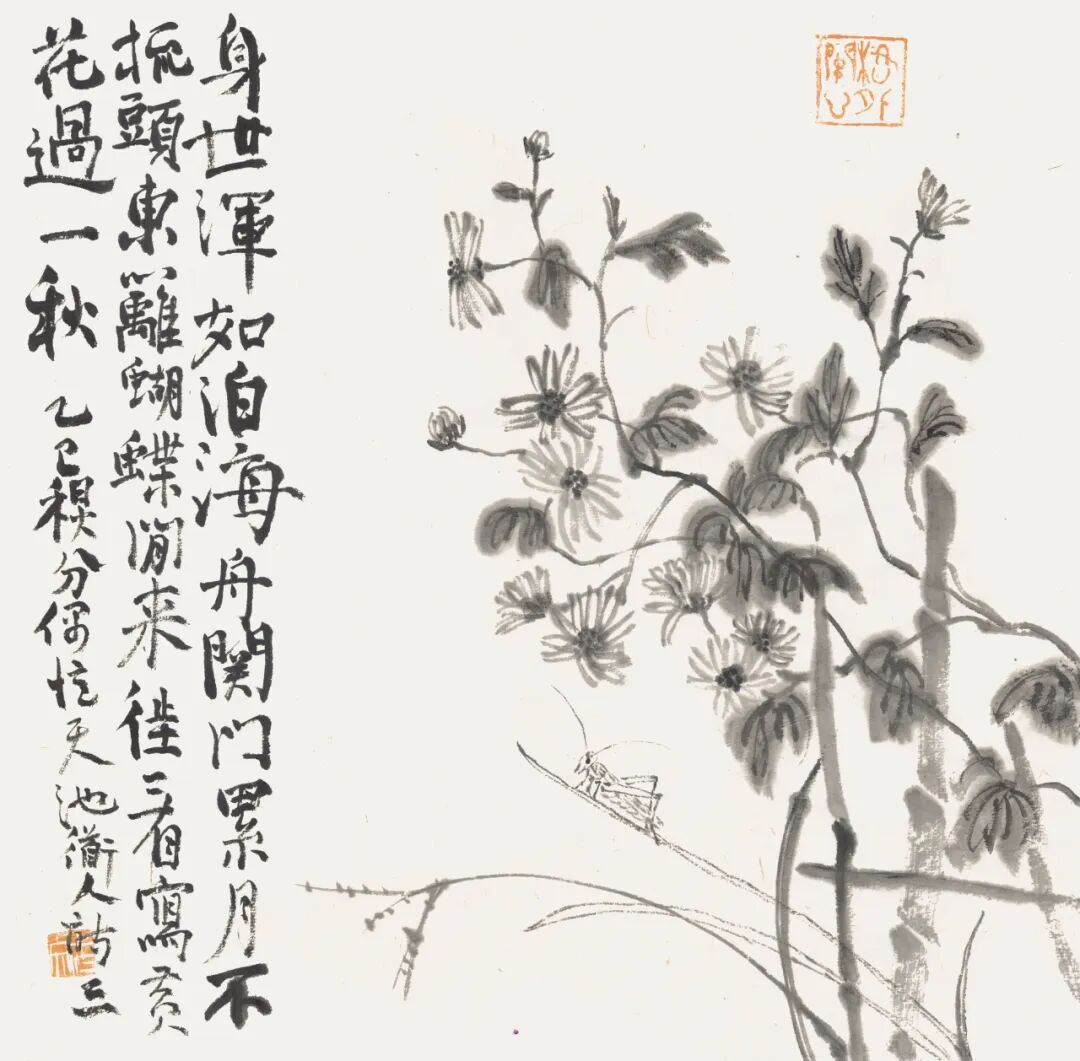 身世渾如泊海舟関门累月不
梳頭東籬蝴蝶閒来徃看寫黄
花過一秋
乙巳秋分偶忆天池衜人詩三